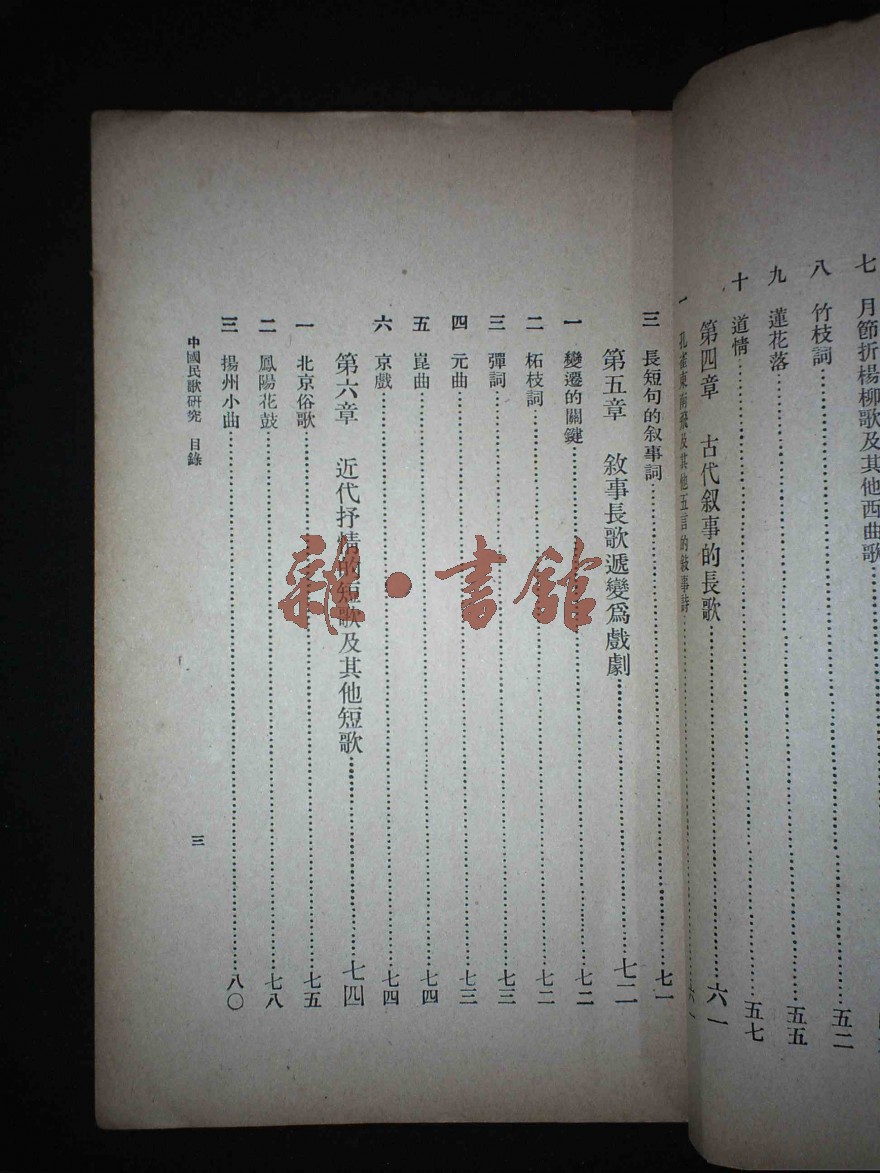 七　月節折楊柳歌及其他西曲歌
八　竹枝詞……五二
九　蓮花落……五五
十　道情……五七
第四章　古代叙事的長歌……六一
一　孔雀東南飛及其他五言的敍事詩……六一
三　長短句的叙事詞……七一
第五章　敘事長歌遞變爲戲劇……七二
一　變遷的關鍵……七二
二　柘枝詞……七二
三　彈詞……七三
四　元曲……七三
五　崑曲……七四
六　京戲……七四
第六章　近代抒情的短歌及其他短歌……七四
一　北京俗歌……七五
二　鳳陽花鼓……七八
三　揚州小曲……八〇
中國民歌研究　目錄
三
雜·書館